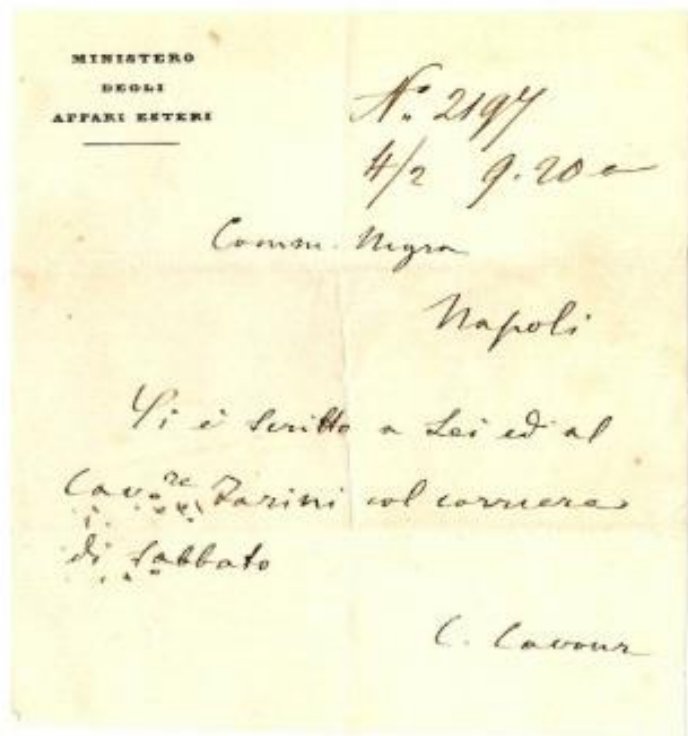 MINISTERO
DEGLI
AFFARI ESTERI
N.º 2197
4/2 9.20
Comm. Nigra
Napoli
Si è scritto a Lei ed al
Cav.re Farini col corriere
di Sabbato
C. Cavour